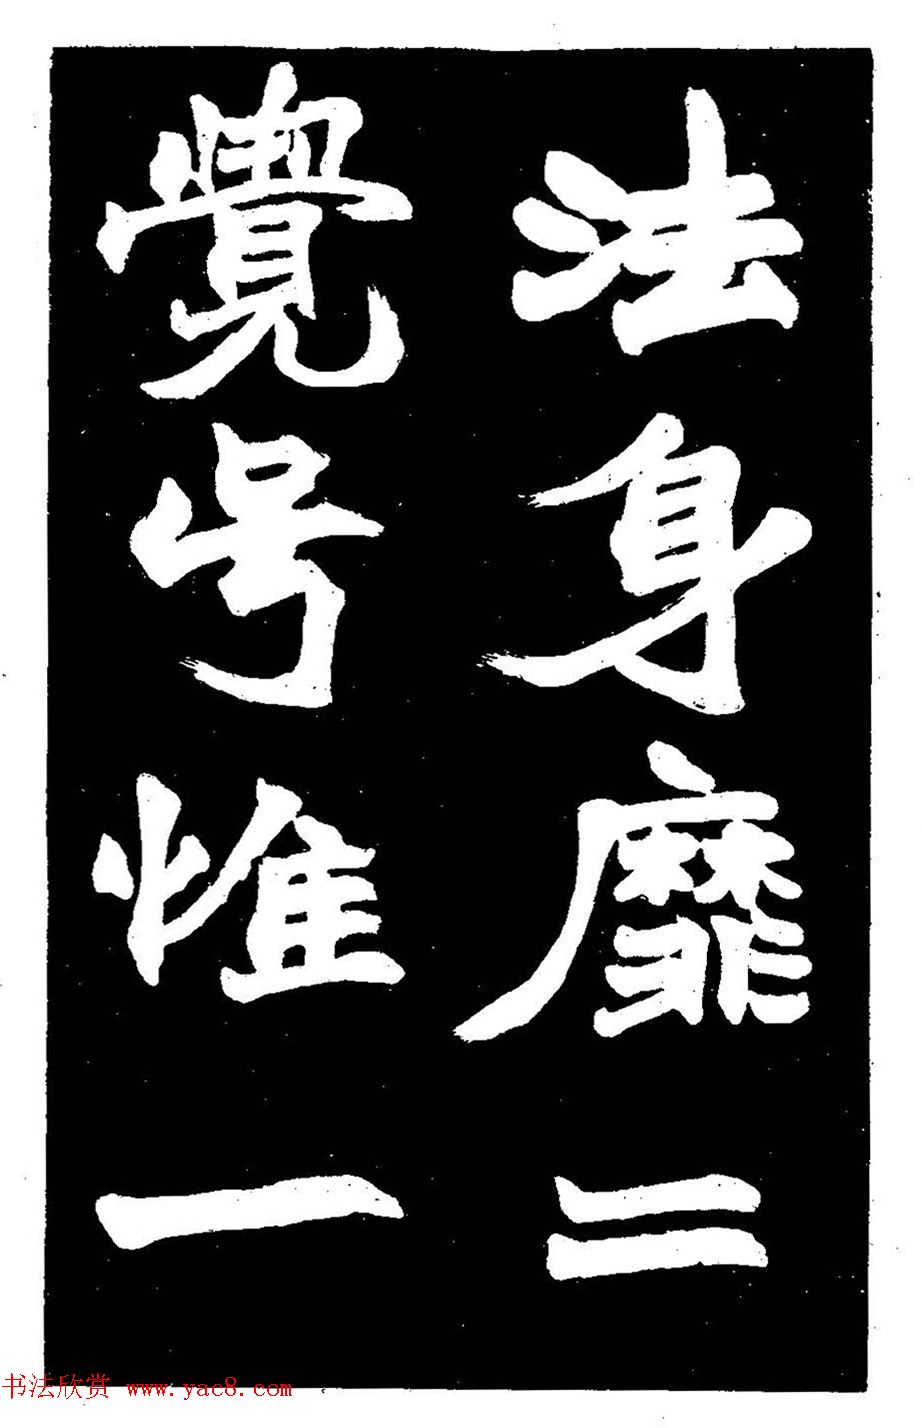 法身靡二
覺号惟一
书法欣赏 www.yac8.com